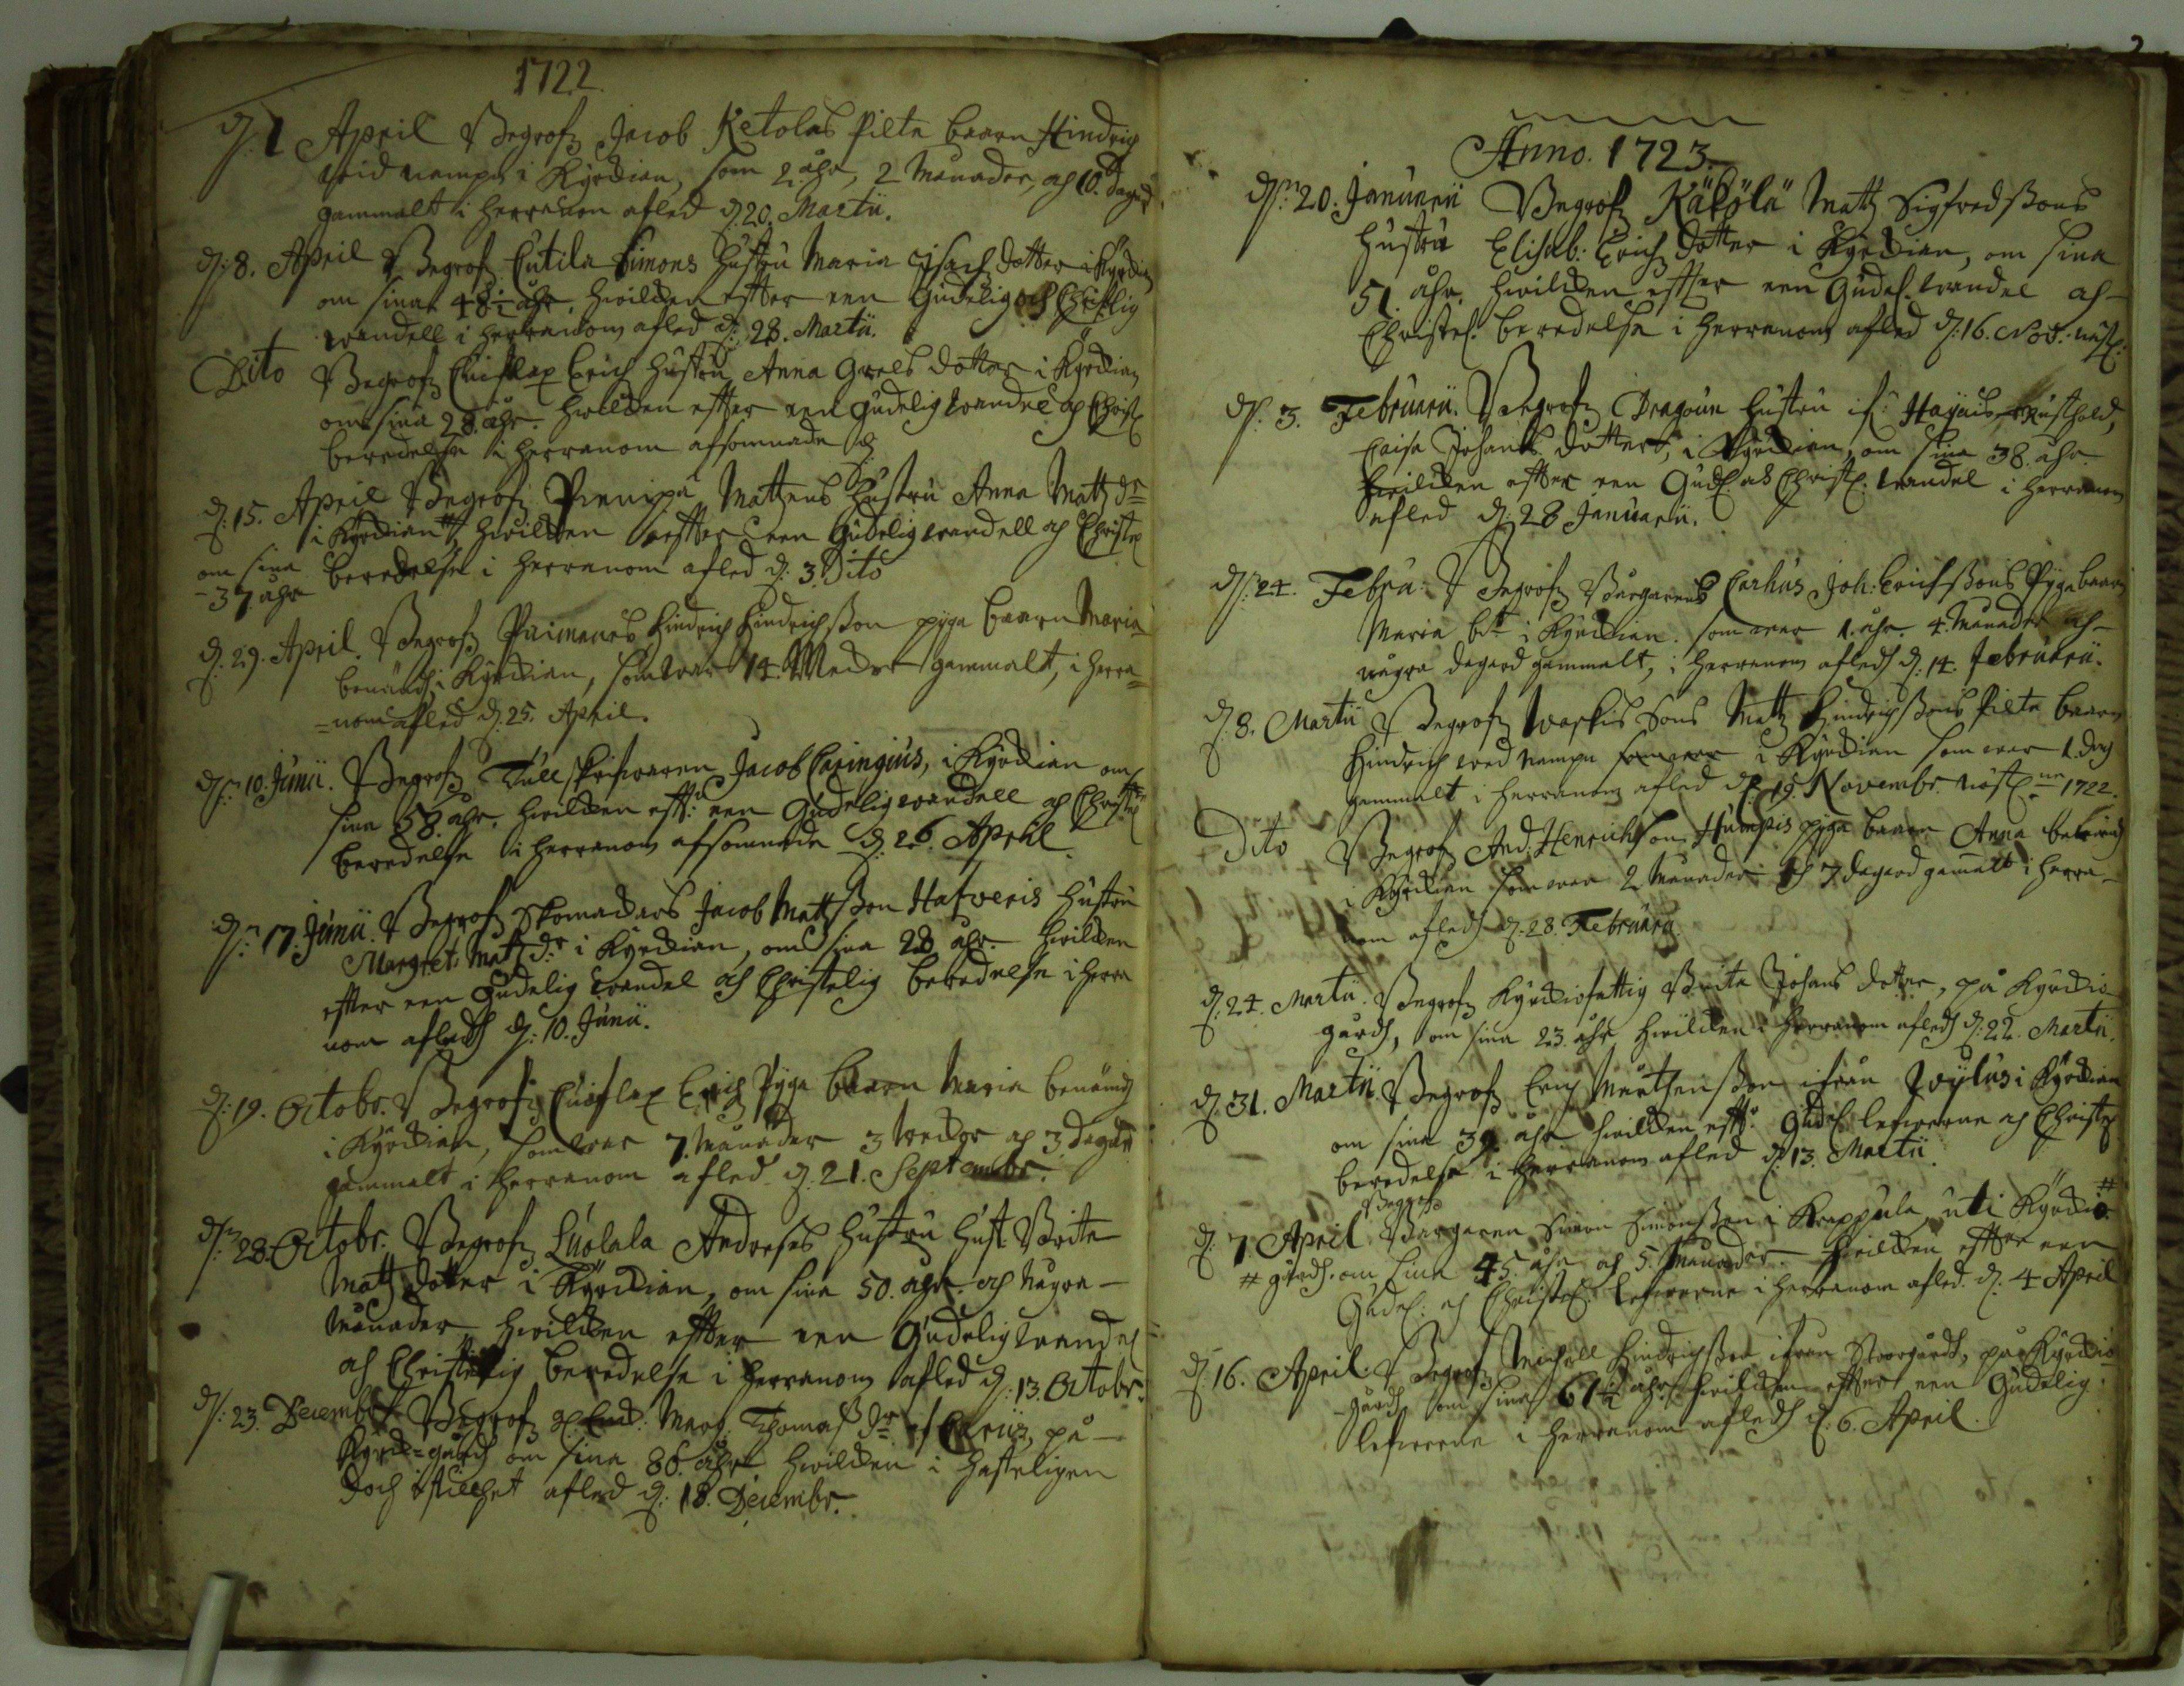 1722
d. 1 April Begrofz Jacob Ketolas Pilte baarn Hindrich
wid nampn i Kyrckian, som 2 åhr, 2 Månader, och 10. dagar
gammalt i herranom afled d. 20. Martii.
d: 8. April Begrofz Eutila Simons hustru Maria Isachz dotter i Kyrckian
om sina 48½ åhr, hwilcken effter een Gudelig och Christlig
wandell i herranom afled d: 28. Martii.
Dito Begrofz Erich hustru Anna Grels dotter i Kyrckian
om sina 28. åhr. hwilcken effter een gudelig wandel och Christl
beredelse i herranom afsomnade d
d: 15. April Begrofz Pirnipä Mattzens hustru Anna Mattz dr
i Kyrckian # hwilcken effter een Gudelig wandell och Christel
om sina beredelse i herranom afled d: 3. Dito
37 åhr
d: 29. April. Begrofz Paimanes Hindrich Hindrichsson pyga baarn Maria
benämd i Kyrckian, som war 14. Weckor gammalt, i herra=
=nom afled d. 25. April.
d: 10. Junii. Begrofz Tull skrifwaren Jacob Caringius, i Kyrckian om
sina 58. åhr, hwilcken efft: een Gudelig wandell och Christel
beredelse i herranom afsomnade d. 26. April.
d: 17. Junii. Begrofz Skomackars Jacob Mattsson Hafveris hustru
Margret: Mattz dr i Kyrckian, om sina 28 åhr. hwilcken
effter een Gudelig wandel och Christelig beredelse i herra
nom afledh d: 10. Junii.
d: 19. Octobr. Begrofz Erich Pyga baarn Maria benämd
i Kyrckian, som war 7. Månader 3 Weckor och 3 dagar
gammalt i herranom afled d. 21. Septembr.
d: 28. Octobr. Begrofz Luolala Andreses hustru hust. Britta
Mattz dotter i Kyrckian, om sina 50. åhr och några
Månader hwilcken effter een Gudelig wandel
och Christelig beredelse i herranom afled d: 13. Octobr.
d: 23. Decembr Begrofz Marg: Thomasdr på
Kyrck=gårdh om sina 86. åhr hwilcken i hasteligen
doch i stillhet afled d: 18. Decembr.
Anno. 1723.
d: 20. Januarii Begrofz Käkölä Mattz Sigfredssons
hustru Elisab: Erichz dotter i Kyrckian, om sina
51. åhr, hwilcken effter een Gudel. wandel och
Christel. beredelse i herranom afled d: 16. Nov.
d: 3. Februarii. Begrofz Dragoun hustru if: Hajais Rusthold,
Caisa Johans dotter, i Kyrckian, om sina 38. åhr.
hwilcken effter een Gudl och Christl. wandel i herranom
afled d: 28 Januarii.
d: 24. Febru: Begrofz Burgarens Carhus Joh: Erichssons Pyga baarn
Maria bd i Kyrckian. som war 1. åhr. 4. Månader och
några dagar gammalt, i herranom afledh d: 14. Februarii.
d. 8. Martii Begrofz Mattz Hindrichssons Pilte baarn
Hindrich wed nampn i Kyrckian som war 1. dag
gammalt i herranom afled d. 19. Novembr. 1722.
Dito Begrofz And: Henrichsson Humpis pyga baarn Anna benämd
i Kyrckian som war 2 Månader och 7 dagar gamalt i herra-
nom afledh d. 28. Februarii
d. 24. Martii. Begrofz Kyrckiofattig Brita Johans dotter, på Kyrckio
gårdh, om sina 23. åhr hwilcken i herranom afledh d: 22. Martii.
d: 31. Martii. Begrofz Erich Mårthensson ifrån i Kyrckian
om sina 39. åhr hwilcken efft: Gudel. lefwerne och Christel
beredelse i herranom afled d. 13. Martii
Begrofz
d: 7. April Borgaren Simon Simonsson i Krappula, uti Kyrckio #
# gårdh. om sina 45. åhr och 5. Månader. hwilcken effter een
Gudel: och Christel. lefwerne i herranom afled. d: 4 April
d: 16. April. Begrofz Michell Hindrichsson ifrån Storegårdh, på Kyrckio
gårdh om sina 61½ åhr, hwilcken effter een Gudelig
lefwerne i herranom afledh d: 6. April.